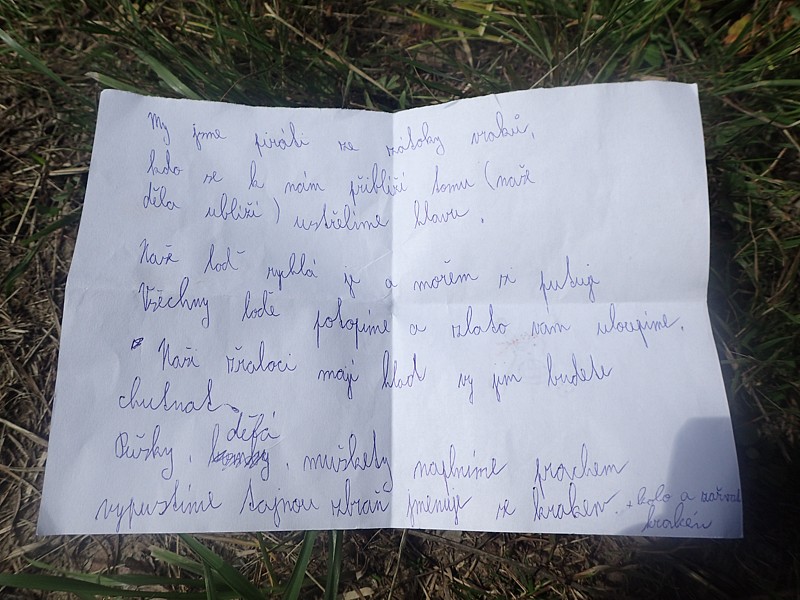 My jsme piráti ze zátoky vraků,
kdo se k nám přiblíží tomu (naše
děla ublíží) ustřelíme hlavu.
Naše loď rychlá je a mořem si putuje
Všechny lodě potopíme a zlato vám uloupíme.
Naši žraloci mají hlad vy jim budete
chutnat
děla
Pušky, bomby, muškety naplníme prachem
vypustíme tajnou zbraň jmenuje se kraken. + kolo a zařvat
kraken